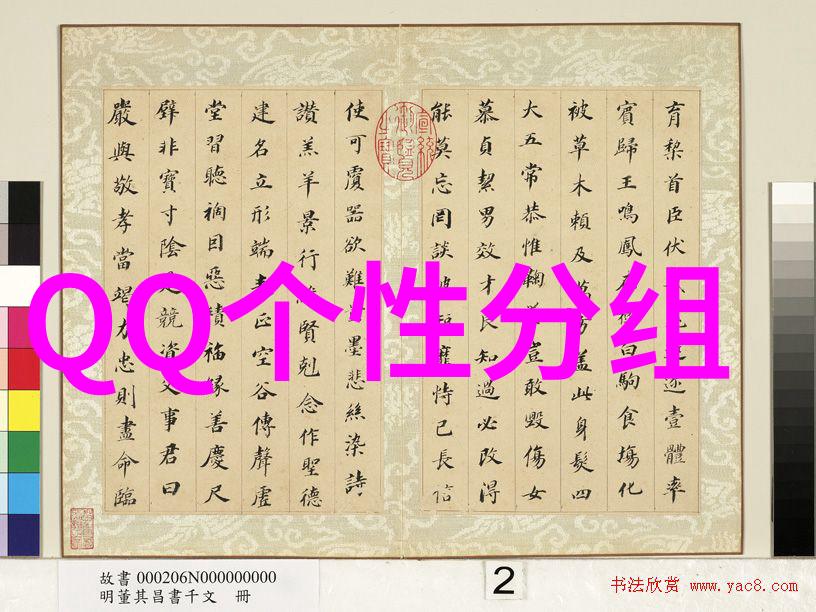 育黎首臣伏迩壹體率
賓歸王鳴鳳白駒食場化
被草木賴及萬方蓋此身髮四
大五常恭惟鞠豈敢毀傷女
慕貞絜男效才良知過必改得
能莫忘罔談靡恃己長信
使可覆器欲難墨悲絲染詩
讚羔羊景行賢剋念作聖德
建名立形端表正空谷傳聲虛
堂習聽禍因惡積福緣善慶尺
璧非寶寸陰是競資父事君曰
嚴與敬孝當竭力忠則盡命臨
QQ个性分组
故書 000206N000000000
明董其昌書千文 冊
2
书法欣赏 www.yac8.com